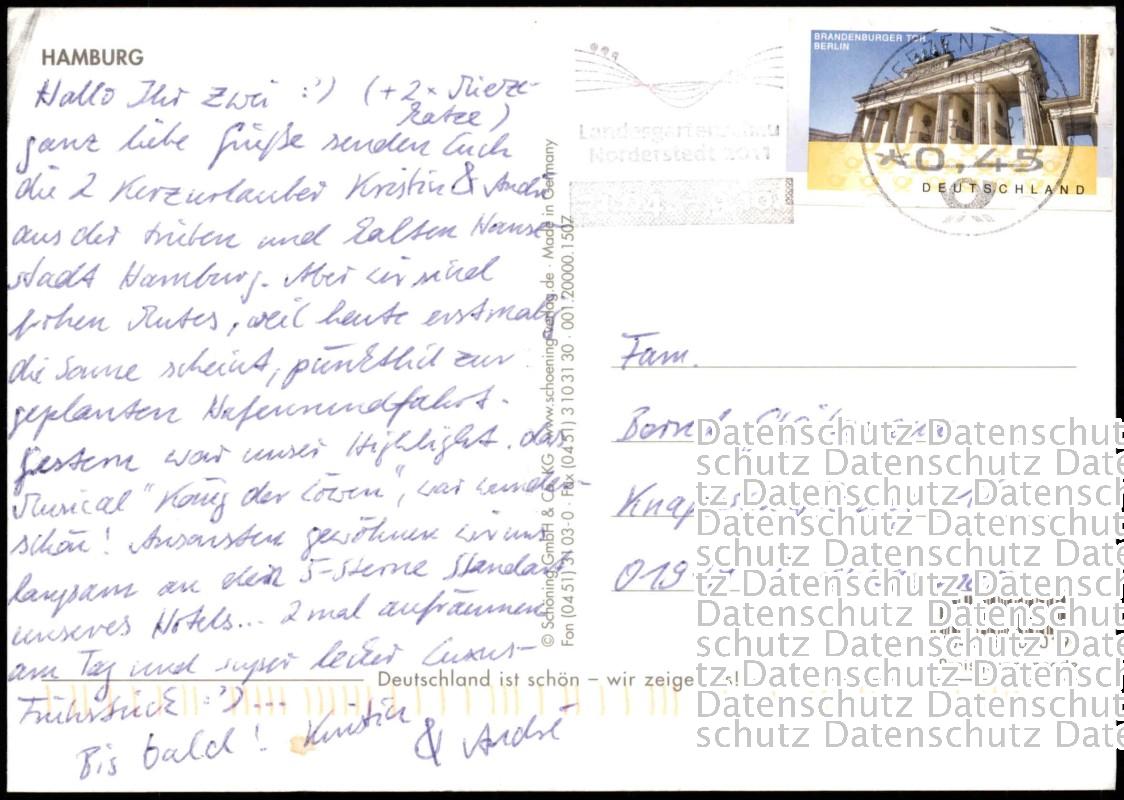 HAMBURG
Hallo Ihr Zwei :') (+ 2x Mieze-
katze)
ganz liebe Grüße senden Euch
die 2 Kurzurlauber Kristin & André
aus der trüben und kalten Hanse-
stadt Hamburg. Aber wir sind
frohen Mutes, weil heute erstmals
die Sonne scheint, pünktlich zur
geplanten Hafenrundfahrt.
Gestern war unser Highlight. das
Musical "König der Löwen", war wunder-
schön! Ansonsten gewöhnen wir uns
langsam an den 5-Sterne Standart
unseres Hotels... 2 mal aufräumen
am Tag und super lecker Luxus-
Frühstück :') ---
Bis bald! Kristin
& André
© Schöning GmbH & Co. KG · www.schoening-verlag.de · Made in Germany
Fon (0451) 31 03-0 · Fax (0451) 3103130 · 001.20000.1507
Deutschland ist schön – wir zeige s!
Landesgartenschau
Norderstedt 2011
BRANDENBURGER TOR
BERLIN
*0,45
DEUTSCHLAND
Fam.
Datenschutz Datenschut
schutz Datenschutz Date
tz Datenschutz Datensch
Datenschutz Datenschut
schutz Datenschutz Date
tz Datenschutz Datensch
Datenschutz Datenschut
schutz Datenschutz Date
tz Datenschutz Datensch
Datenschutz Datenschut
schutz Datenschutz Date